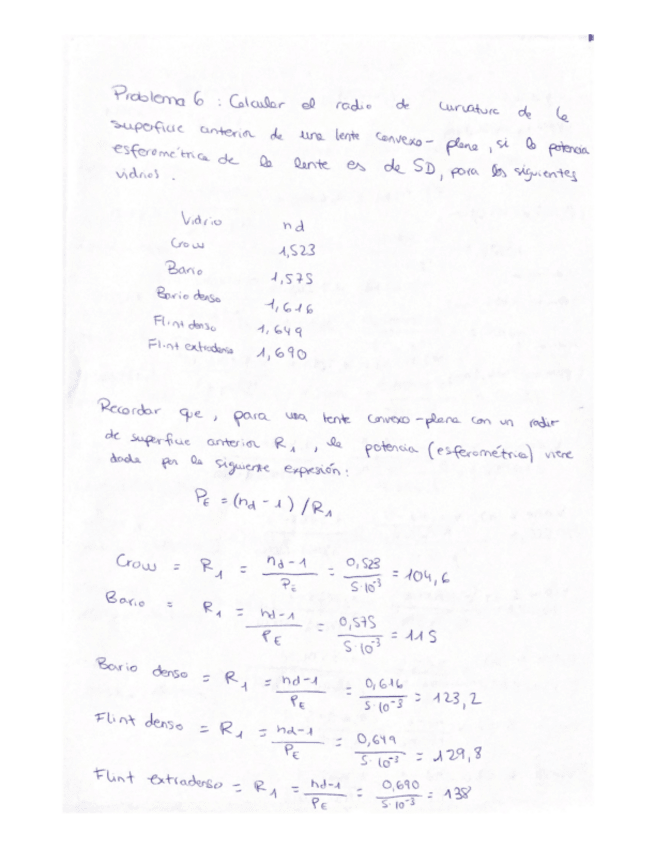 Problema 6 : Calcular el radio de curvatura de la
superficie anterior de una lente convexo - plana, si la potencia
esferométrica de la lente es de 5D, para los siguientes
vidrios.
Vidrio nd
Crow 1,523
Bario 1,575
Bario denso 1,616
Flint denso 1,649
Flint extradenso 1,690
Recordar que, para una lente convexo-plana con un radio
de superficie anterior R₁, la potencia (esferométrica) viene
dada por la siguiente expresión:
P_E = (nd - 1) / R₁
Crow = R₁ = nd-1 / P_E = 0,523 / 5·10⁻³ = 104,6
Bario = R₁ = nd-1 / P_E = 0,575 / 5·10⁻³ = 115
Bario denso = R₁ = nd-1 / P_E = 0,616 / 5·10⁻³ = 123,2
Flint denso = R₁ = nd-1 / P_E = 0,649 / 5·10⁻³ = 129,8
Flint extradenso = R₁ = nd-1 / P_E = 0,690 / 5·10⁻³ = 138